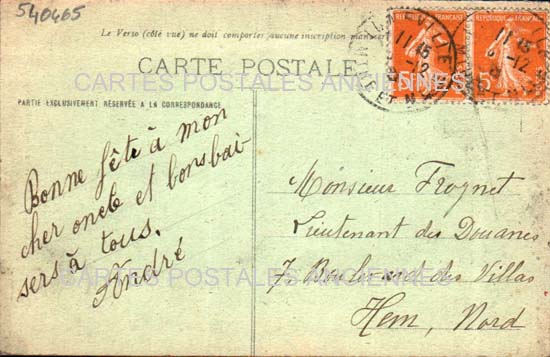 540465
Le Verso (côté vue) ne doit comporter aucune inscription
CARTE POSTALE
RÉPUBLIQUE FRANÇAISE
RÉPUBLIQUE FRANÇAISE
CARTES POSTALES ANCIENNES
PARTIE EXCLUSIVEMENT RÉSERVÉE A LA CORRESPONDANCE
Bonne fête à mon
cher oncle et bons bai
sers à tous.
André
Monsieur
Lieutenant des Douanes
7 Boulevard des Villas
Hem, Nord
CARTES POSTALES ANCIENNES